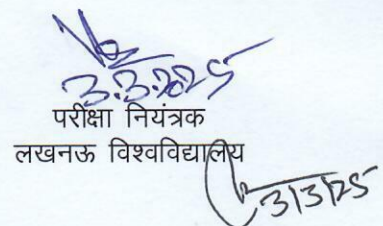 3.3.2025
परीक्षा नियंत्रक
लखनऊ विश्वविद्यालय
3/3/25